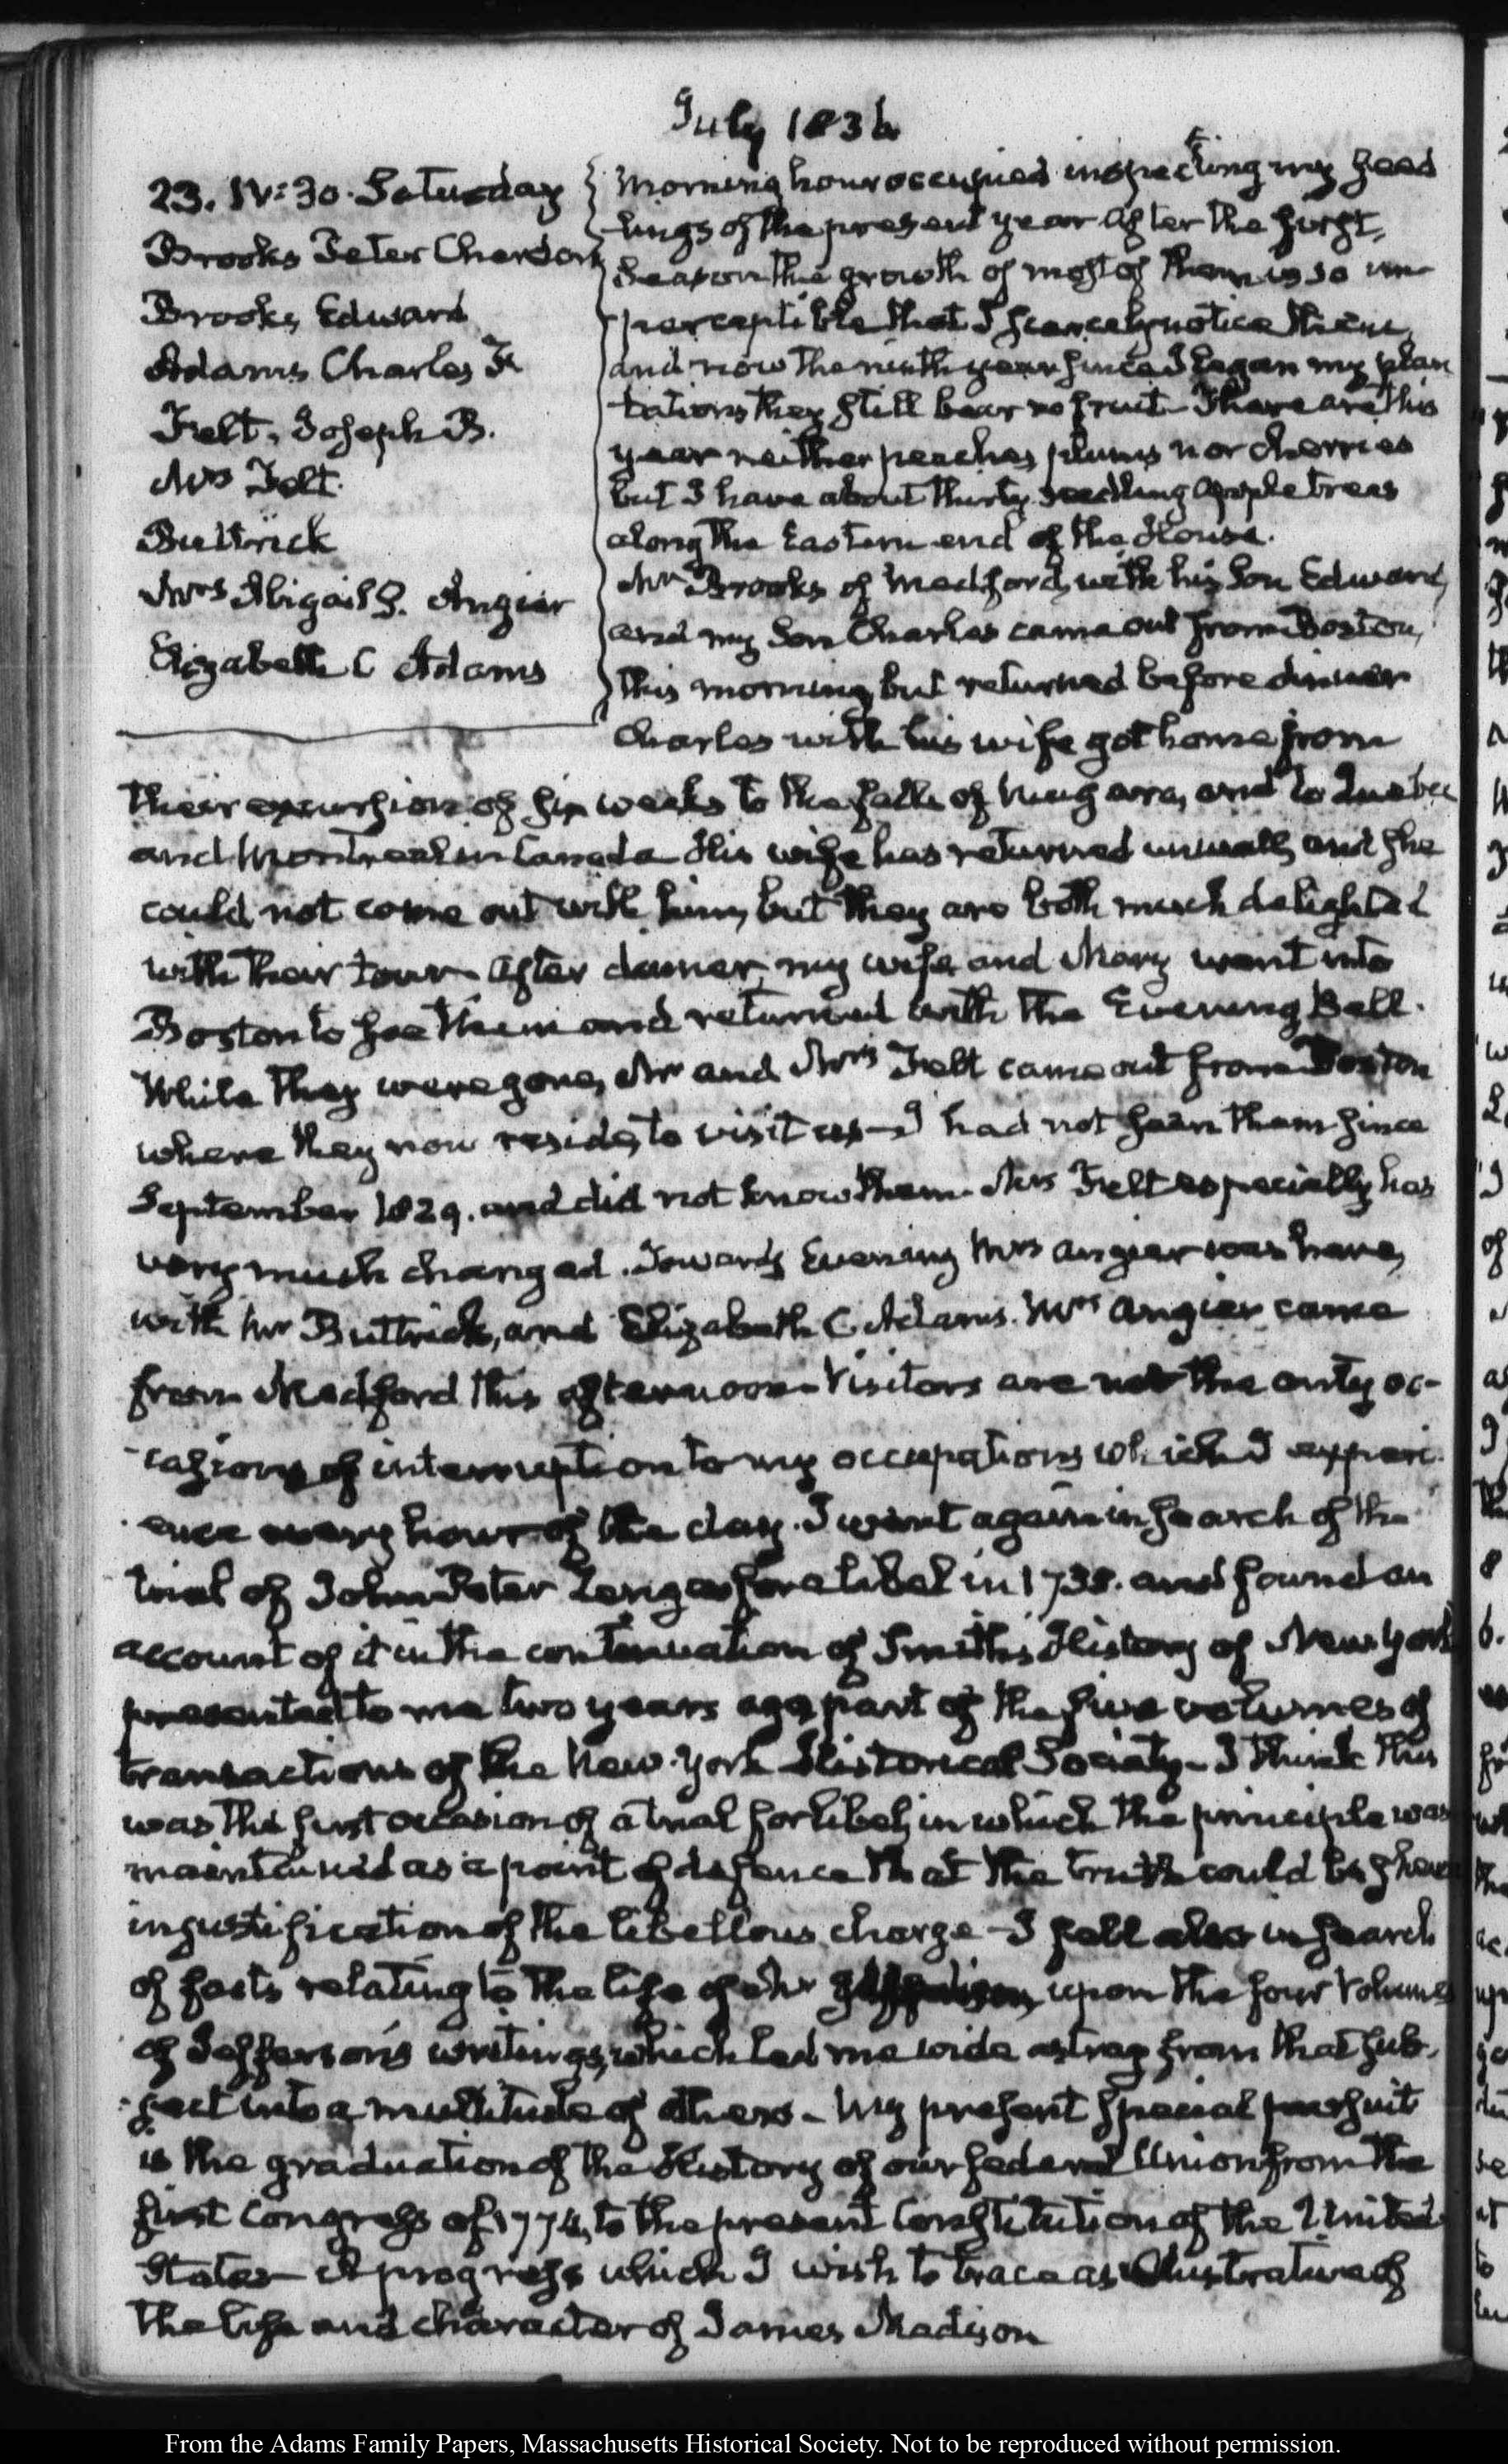 July 1836
23. IV:30. Saturday
Brooks Peter Chardon
Brooks, Edward
Adams Charles F.
Felt, Joseph B.
Mrs Felt.
Buttrick
Mrs Abigail S. Angier
Elizabeth C Adams
Morning hour occupied inspecting my seed
lings of the present year After the first,
season the growth of most of them is so im-
perceptible that I scarcely notice them,
and now the ninth year since I began my plan
tations they still bear no fruit. There are this
year neither peaches, plums nor cherries
but I have about thirty seedling apple trees
along the Eastern end of the House.
Mr Brooks of Medford, with his Son Edward,
and my Son Charles came out from Boston,
this morning, but returned before dinner
Charles with his wife got home from
their excursion of six weeks to the falls of Niagara, and to Quebec
and Montreal in Canada His wife has returned unwell, and she
could not come out with him, but they are both much delighted
with their tour. After dinner, my wife and Mary went into
Boston to see them and returned with the Evening Bell.
While they were gone, Mr and Mrs Felt came out from Boston
where they now reside, to visit us—I had not seen them since
September 1829. and did not know them. Mrs Felt especially has
very much changed. Towards Evening Mrs Angier was here,
with Mr Buttrick, and Elizabeth C. Adams. Mrs Angier came
from Medford this afternoon—Visitors are not the only oc-
casions of interruption to my occupations which I experi-
ence every hour of the day. I went again in search of the
trial of John Peter Zenger for a libel in 1735. and found an
account of it in the continuation of Smith's History of New York
presented to me two years ago, part of the five volumes of
transactions of the New-York Historical Society—I think this
was the first occasion of a trial for libel, in which the principle was
maintained as a point of defence that the truth could be shewn
in justification of the libellous charge—I fell also in search
of facts relating to the life of Mr upon the four Volumes
of Jefferson's writings, which led me wide astray from that sub-
ject into a multitude of others—My present special pursuit
is the graduation of the History of our federal Union from the
first Congress of 1774, to the present Constitution of the United
States—A progress which I wish to trace as illustrative of
the life and character of James Madison
From the Adams Family Papers, Massachusetts Historical Society. Not to be reproduced without permission.